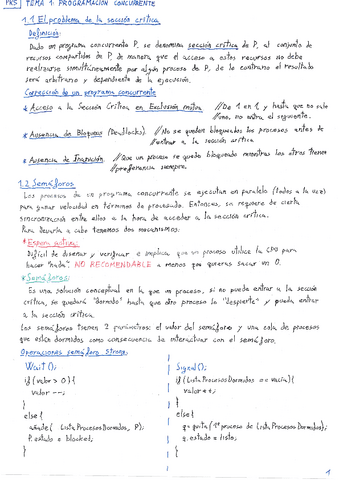 PRS | TEMA 1: PROGRAMACIÓN CONCURRENTE
1.1 El problema de la sección crítica
Definición:
Dado un programa concurrente P, se denomina sección crítica de P, al conjunto de
recursos compartidos de P, de manera que el acceso a estos recursos no debe
realizarse simultáneamente por algún proceso de P, de lo contrario el resultado
será arbitrario y dependiente de la ejecución.
Corrección de un programa concurrente
* Acceso a la Sección Crítica en Exclusión mutua. //De 1 en 1, y hasta que no sale
//uno, no entra el siguiente.
* Ausencia de Bloqueos (Deadlocks). //No se quedan bloqueados los procesos antes de
//entrar a la sección crítica
* Ausencia de Inanición. //Que un proceso se quede bloqueado mientras los otros tienen
//preferencia siempre.
1.2 Semáforos
Los procesos de un programa concurrente se ejecutan en paralelo (todos a la vez)
para ganar velocidad en términos de procesado. Entonces, se requiere de cierta
sincronización entre ellos a la hora de acceder a la sección crítica.
Para llevarla a cabo tenemos dos mecanismos.
* Espera activa:
Difícil de diseñar y verificar e implica que un proceso utilice la CPU para
hacer "nada". NO RECOMENDABLE a menos que quieras sacar un 0.
* Semáforos:
Es una solución conceptual en la que un proceso, si no puede entrar a la sección
crítica, se quedará "dormido" hasta que otro proceso lo "despierte" y pueda entrar
a la sección crítica.
Los semáforos tienen 2 parámetros: el valor del semáforo y una cola de procesos
que están dormidos como consecuencia de interactuar con el semáforo.
Operaciones semáforo Strong:
Wait();
if (valor > 0) {
valor --;
}
else {
añade( ListaProcesosDormidos, P);
P.estado = blocked;
}
Signal();
if (ListaProcesosDormidos == vacía) {
valor ++;
}
else {
q = quita (1º proceso de ListaProcesosDormidos);
q.estado = listo;
}
1